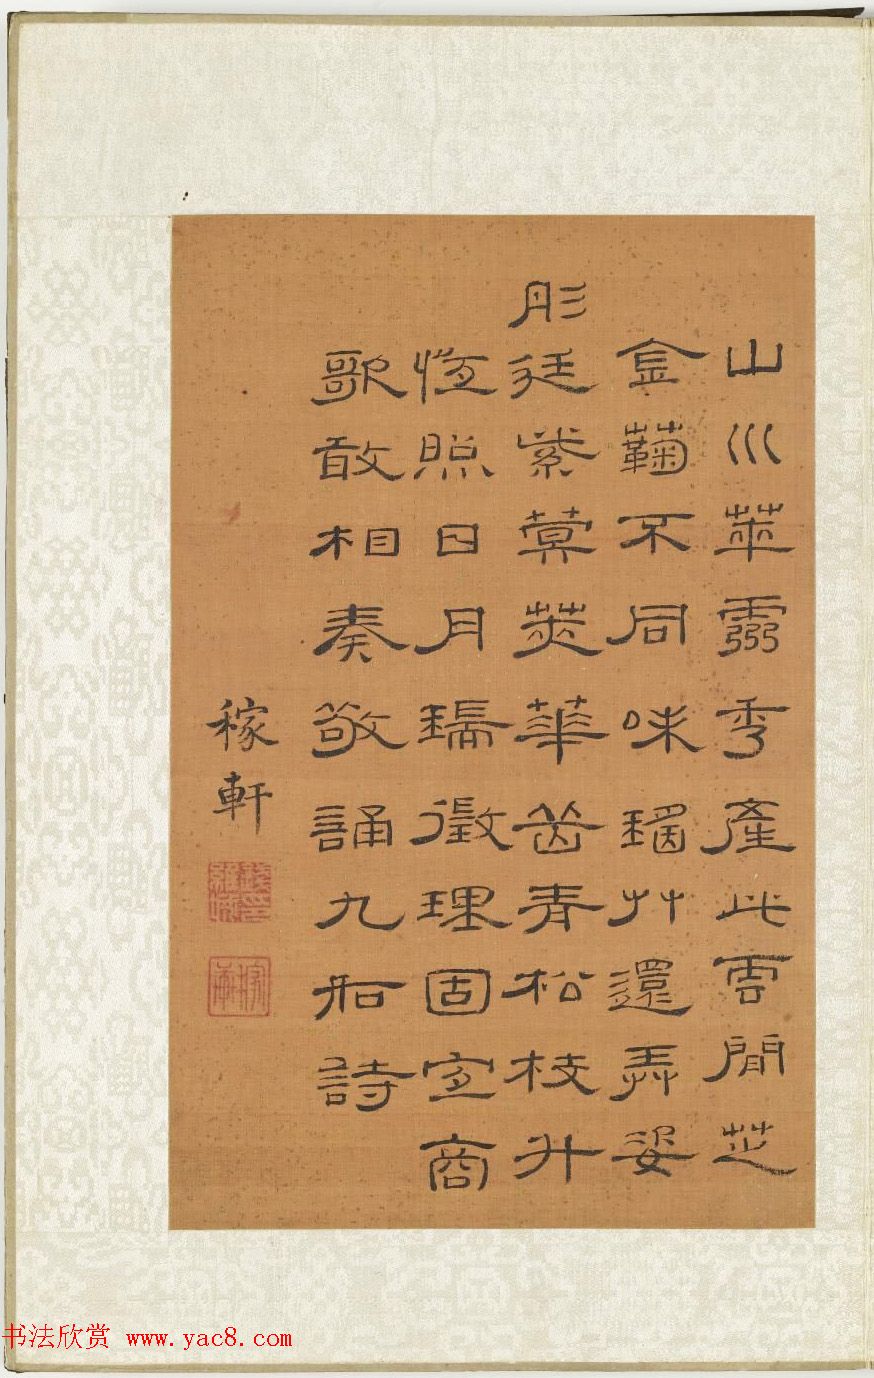 山川萃靈秀產此雲間芝
金蘜不同味瑤艸還弄姿
彤廷紫蓂莢華齒青松枝升
恆照日月瑞徵理固宜商
歌敢相奏敬誦九如詩
稼軒
书法欣赏 www.yac8.com